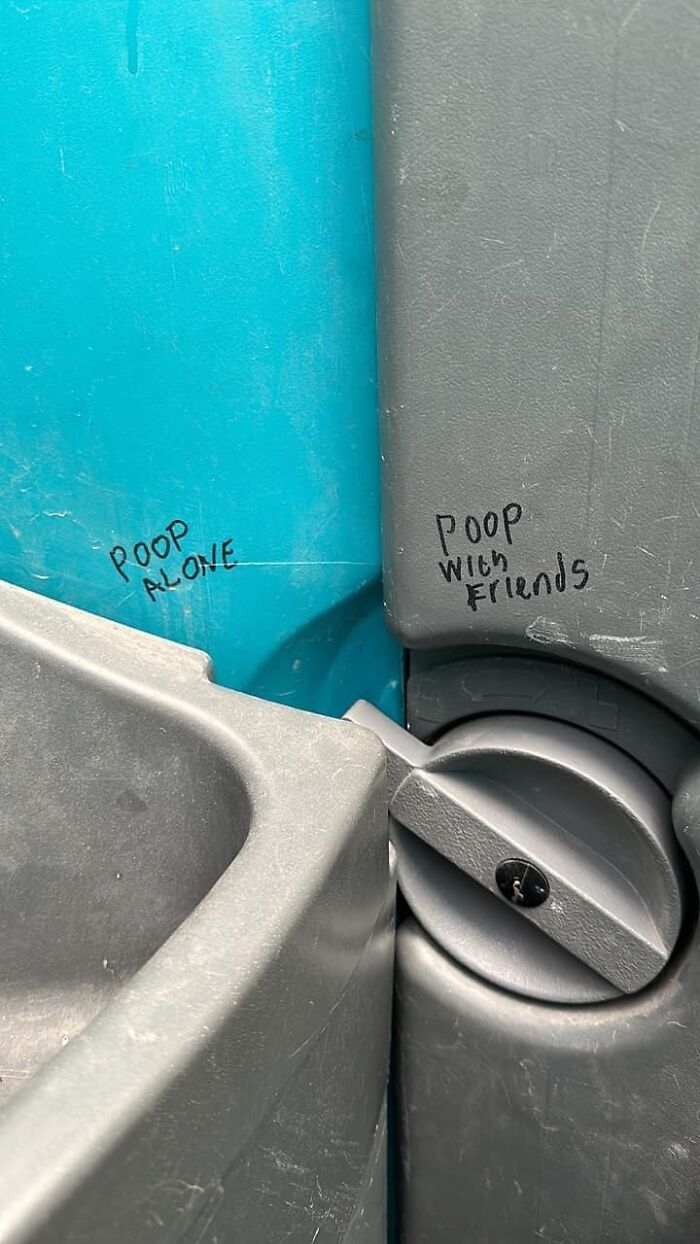 POOP
ALONE
POOP
With
Friends